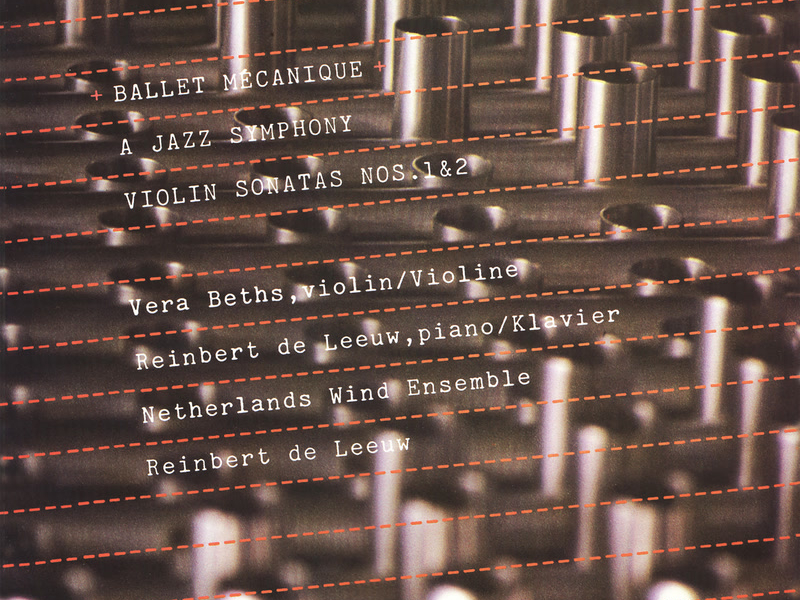 + BALLET MÉCANIQUE +
A JAZZ SYMPHONY
VIOLIN SONATAS NOS.1&2
Vera Beths,violin/Violine
Reinbert de Leeuw,piano/Klavier
Netherlands Wind Ensemble
Reinbert de Leeuw